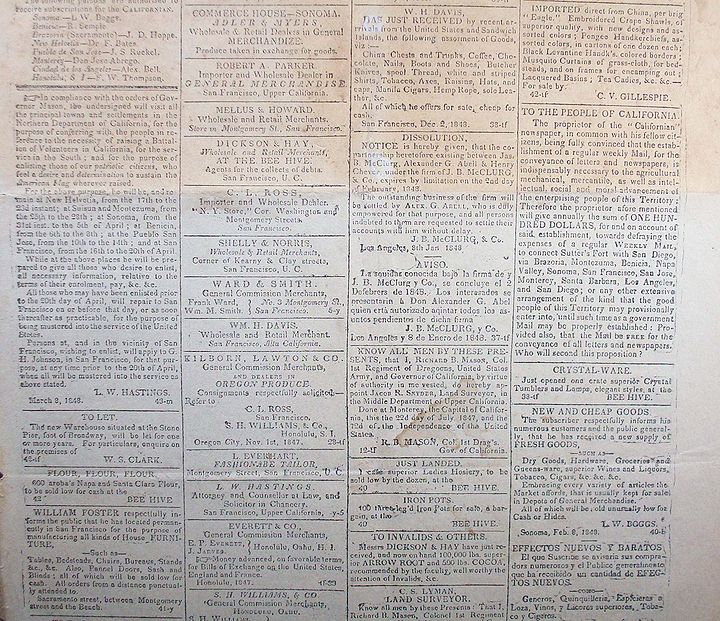 receive subscription for the CALIFORNIAN.
Sonoma—L. W. Boggs.
Benecia—R. Semple
Brazoria (Sacramento)—J. D. Hoppe.
New Helvetia—Dr. F. Bates.
Pueblo de San Jose—J. S. Ruckel.
Monterey—Don Jose Abrego.
Ciudad de los Angeles—Alex. Bell.
Honolulu, S I—W. Thompson.
In compliance with the orders of Gov-
ernor Mason, the undersigned will visit all
the principal towns and settlements in the
Northern Department of California, for the
purpose of conferring with the people in re-
ference to the necessity of raising a Battal-
ion of Volunteers in California, for the ser-
vice in the South; and for the purpose of
enlisting those of our patriotic citizens, who
feel a desire and determination to sustain the
American Flag wherever raised.
For the above purpose, he will be, and re-
main at New Helvetia, from the 17th to the
22d instant; at Suisun and Montezuma, from
the 25th to the 28th; at Sonoma, from the
31st inst. to the 5th of April; at Benicia,
from the 6th to the 8th; at the Pueblo San
Jose, from the 10th to the 14th; and at San
Francisco, from the 16th to the 20th of April.
While at the above places he will be pre-
pared to give all those who desire to enlist,
all necessary information, relative to the
terms of their enrolment, pay, &c. &c.
All those who may have been enlisted prior
to the 20th day of April, will repair to San
Francisco on or before that day, or as soon
thereafter as practicable, for the purpose of
being mustered into the service of the United
States.
Persons at, and in the vicinity of San
Francisco, wishing to enlist, will apply to G.
H. Johnson, in San Francisco, for that pur-
pose, at any time prior to the 20th of April,
when all will be mustered into the service as
above stated.
L. W. HASTINGS.
March 8, 1848. 43-m
TO LET.
The new Warehouse situated at the Stone
Pier, foot of Broadway, will be let for one
or more years. For particulars, enquire on
the premises of
42-tf W. S. CLARK.
FLOUR, FLOUR, FLOUR.
600 aroba's Napa and Santa Clara Flour,
to be sold low for cash at the
42 BEE HIVE
WILLIAM FOSTER respectfully in-
forms the public that he has located perman-
ently in San Francisco for the purpose of
manufacturing all kinds of House FURNI-
TURE,
—Such as—
Tables, Bedsteads, Chairs, Bureaus, Stands
&c. &c. Also, Pannel Doors, Sash and
Blinds; all of which will be sold low for
cash. All orders from a distance punctual-
ly attended to.
Sacramento street, between Montgomery
street and the Beach. 41-y
COMMERCE HOUSE—SONOMA.
ADLER & MYERS,
Wholesale & Retail Dealers in General
MERCHANDIZE.
Produce taken in exchange for goods.
ROBERT A. PARKER
Importer and Wholesale Dealer in
GENERAL MERCHANDISE
San Francisco, Upper California.
MELLUS & HOWARD.
Wholesale and Retail Merchants.
Store in Montgomery St., San Francisco.
DICKSON & HAY,
Wholesale and Retail Merchants,
AT THE BEE HIVE.
Agents for the collects of debts.
San Francisco, U. C.
C. L. ROSS,
Importer and Wholesale Dealer.
"N. Y. Store," Cor. Washington and
Montgomery Streets.
San Francisco.
SHELLY & NORRIS,
Wholesale & Retail Merchants,
Corner of Kearny & Clay streets,
San Francisco, U. C.
WARD & SMITH.
General Commission Merchants,
Frank Ward, } No. 3 Montgomery St.,
Wm. M. Smith. } San Francisco. 5-y
WM. H. DAVIS.
Wholesale and Retail Merchant.
San Francisco, Alta California.
KILBORN, LAWTON & CO.
General Commission Merchants,
AND DEALERS IN
OREGON PRODUCE.
Consignments respectfully solicited—
Refer to
C. L. ROSS,
San Francisco.
S. H. WILLIAMS, & Co.,
Honolulu, S. I
Oregon City, Nov. 1st, 1847. 28-tf
L. EVERHART,
FASHIONABLE TAILOR,
Montgomery Street, San Francisco, U. C.
L. W. HASTINGS.
Attorney and Counsellor at Law, and
Solicitor in Chancery,
San Francisco, Upper California. -y-5
EVERETT & CO.,
General Commission Merchants,
E. P. EVERETT, } Honolulu, Oahu, H. I.
J. JARVES, }
Money advanced, on favorable terms,
for Bills of Exchange on the United States,
England and France.
Honolulu, 1847.
S. H. WILLIAMS, & CO.
General Commission Merchants,
HONOLULU, OAHU,
S. H. WILLIAMS
W. H. DAVIS,
HAS JUST RECEIVED by recent ar-
rivals from the United States and Sandwich
Islands, the following assortment of Goods,
viz:—
China Chests and Trunks, Coffee, Cho-
colate, Nails, Boots and Shoes, Butcher
Knives, spool Thread, white and striped
Shirts, Tobacco, Axes, Raisins, Hats, and
caps, Manila Cigars, Hemp Rope, sole Lea-
ther, &c.
All of which he offers for sale, cheap for
cash.
San Francisco, Dec. 2, 1848. 38-tf
DISSOLUTION.
NOTICE is hereby given, that the co-
partnership heretofore existing between Jas.
B. McClurg, Alexander G. Abell & Henry
Cheever, under the firm of J. B. McCLURG
& Co., expires by limitation on the 2nd day
of February, 1848.
The outstanding business of the firm will
be settled by ALEX. G. ABELL, who is duly
empowered for that purpose, and all persons
indebted to them are requested to settle their
accounts with him without delay.
J. B. McCLURG, & Co.
Los Angeles, 8th Jan 1848
AVISO.
La sociedad conocida bajo la firma de y
J. B. McClurg y Co., se concluye el 2
Febrero de 1848. Los interesados se
presentaran à Don Alexander G. Abel
quien està autorizado ajuntar todos los as-
untos pendientes de dicha firma
J. B. McCLURG, y Co.
Los Angeles y 8 de Enero de 1848. 37-tf
KNOW ALL MEN BY THESE PRE-
SENTS, that I, RICHARD B. MASON, Col.
1st Regiment of Dragoons, United States
Army, and Governor of California, by virtue
of authority in me vested, do hereby ap-
point JACOB R. SNYDER, LAND SURVEYOR, in
the Middle Department of Upper California.
Done at Monterey, the Capital of Califor-
nia, this the 22d day of July, 1847, and the
72d of the Independence of the United
States.
R. B. MASON, Col. 1st Drag's.
12-tf Gov. of California.
JUST LANDED.
1 case superior Ladies Hosiery, to be
sold low by the dozen, at the
40 BEE HIVE.
IRON POTS.
100 three leg'd Iron Pots for sale, a bar-
gain, at the
40 BEE HIVE.
TO INVALIDS & OTHERS.
Messrs DICKSON & HAY have just re-
ceived, and now on hand 100,000 lbs. super-
ior ARROW ROOT and 590 lbs. COCOA,
recommended by the faculty, well worthy the
attention of Invalids, &c.
C. S. LYMAN,
LAND SURVEYOR.
Know all men by these Presents: That I,
Richard B. Mason, Colonel 1st Regiment
IMPORTED direct from China, per brig
"Eagle," Embroidered Crape Shawls, of
superior quality, with new designs and as-
sorted colors; Pongee Handkerchiefs, as-
sorted colors, in cartons of one dozen each;
Black Levantine Handk's, colored borders;
Musquito Curtains of grass-cloth, for bed-
steads, and on frames for encamping out;
Lacquered Basins; Tea Cadies, &c. &c.—
For sale by
42-tf C. V. GILLESPIE.
TO THE PEOPLE OF CALIFORNIA.
The proprietor of the "California"
newspaper, in common with his fellow citi-
zens, being fully convinced that the estab-
lishment of a regular weekly Mail, for the
conveyance of letters and newspapers, is
indispensably necessary to the agricultural,
mechanical, mercantile, as well as intel-
lectual, social and moral advancement of
the enterprising people of this Territory;
Therefore the proprietor afore mentioned
will give annually the sum of ONE HUN-
DRED DOLLARS, for and on account of
said establishment, towards defraying the
expenses of a regular WEEKLY MAIL,
to connect Sutter's Fort with San Diego,
via Brazoria, Montezuma, Benicia, Napa
Valley, Sonoma, San Francisco, San Jose,
Monterey, Santa Barbara, Los Angeles,
and San Diego; or any other extensive
arrangement of the kind that the good
people of this Territory may provisionally
enter into, until such time as a government
Mail may be properly established: Pro-
vided also, that the Mail be FREE for the
conveyance of all letters and newspapers.
Who will second this proposition?
CRYSTAL-WARE.
Just opened one crate superior Crystal
Tumblers and Lamps, elegant styles, at the
33-tf BEE HIVE.
NEW AND CHEAP GOODS.
The subscriber respectfully informs his
numerous customers and the public general-
ly, that he has required a new supply of
FRESH GOODS,
—SUCH AS—
Dry Goods, Hardware, Groceries and
Queens-ware, superior Wines and Liquors,
Tobacco, Cigars, &c. &c. &c.
Embracing every variety of articles the
Market affords, that is usually kept for sale
in Depots of General Merchandise.
All of which will be sold unusually low for
Cash or Hides.
L. W. BOGGS.
Sonoma, Feb. 8, 1848. 40-tf
EFFECTOS NUEVOS Y BARATOS.
El que Suscribe se avisaria sus compra-
dores numerosos y el Publico generalmente
que ha recebido un cantidad de EFEC-
TOS NUEVOS.
—COMO—
Generos, Quinquilleria, Especieras a
Loza, Vinos, y Lacores superiores, Taba-
co y Cigaros.